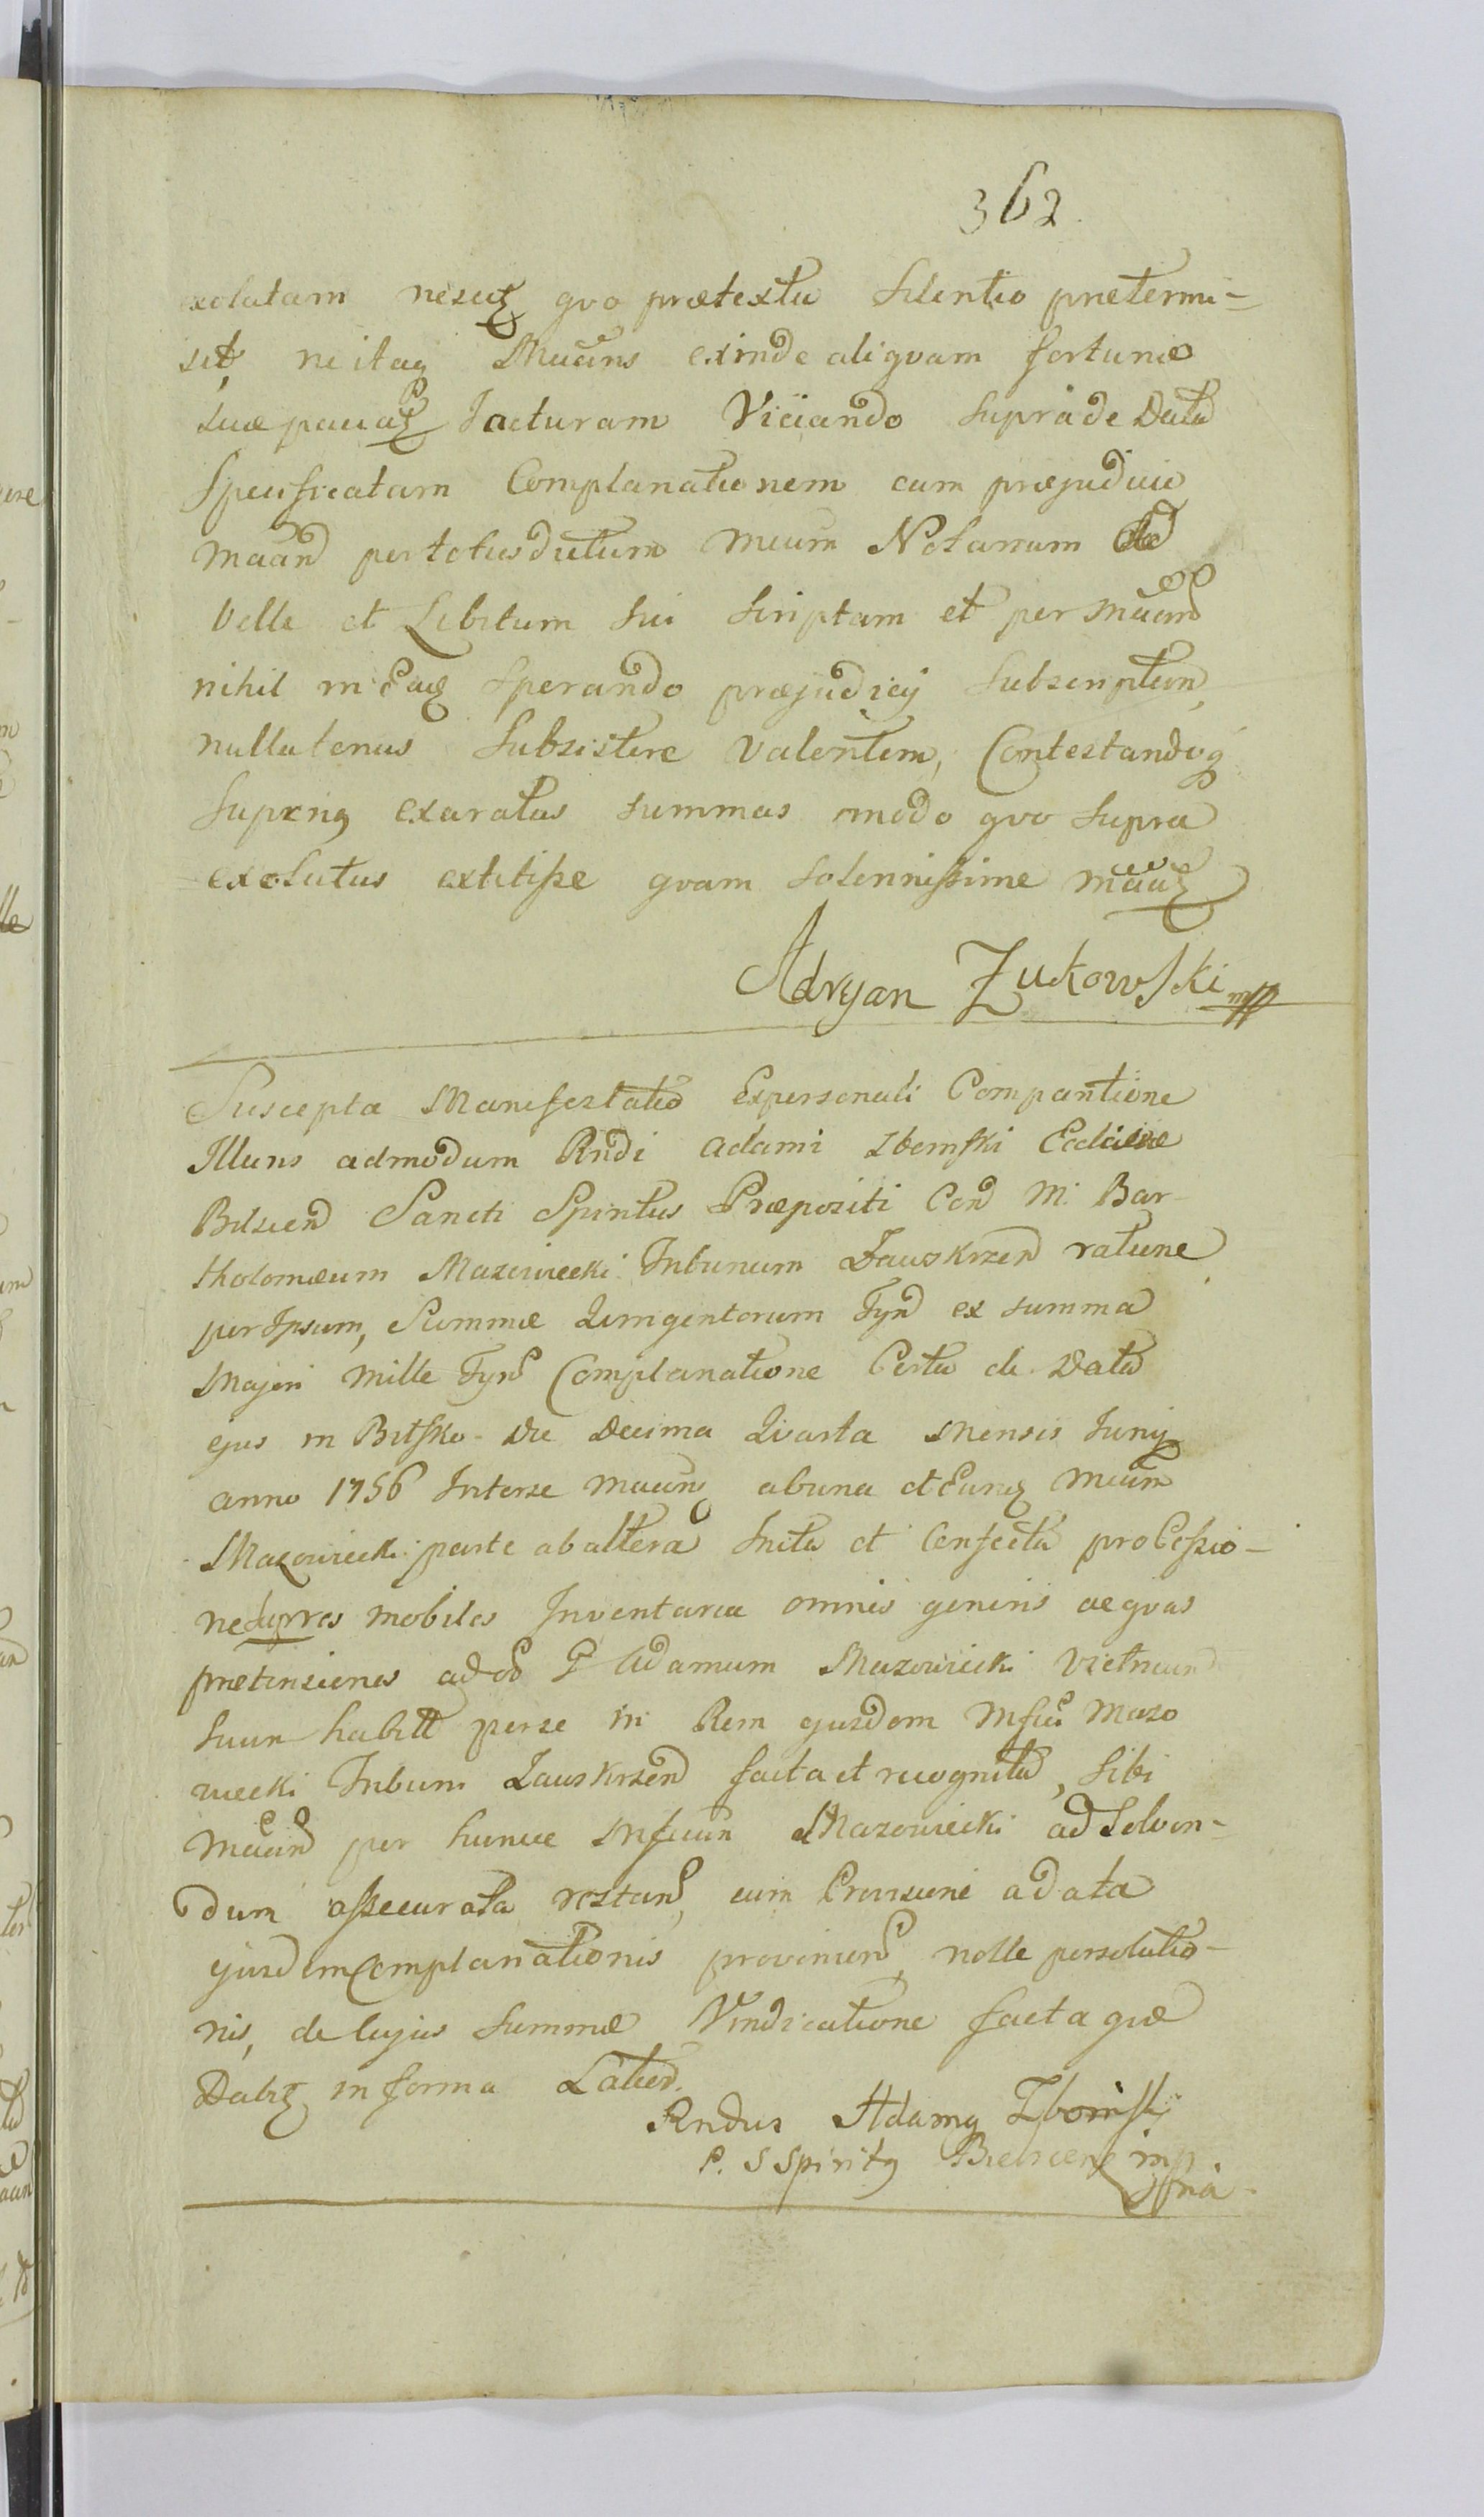 362.
exolutam nescitq quo prætextu silentio prætermi-
sit, ne itaq Mācīns exinde aliquam fortunæ
suæ patiatq Jacturam Viciando supra de Data
specificatam Complanationem cum præjudicio
māān per totiesdictum meum Notarium ad
Velle et Libitum sui scriptam et per māān
nihil in Eaq sperando præjudicij subscriptam,
nullatenus subsistere valentem, Contestandoq
superiq exaratas summas modo quo supra
exolutas extitisse quam solennissime māāq
Adryan Zukowski mpp
Suscepta Manifestatio Expersonali Comparitione
Illuris admodum Rndi Adami Zbomski Ecclæiæ
Bilscen Sancti Spiritus Præpositi Con M. Bar-
tholomæum Mazowiecki Tribunum Zauskrzen ratione
per Ipsum, Summæ Quingentorum Fyn ex summa
Majori mille Fyn Complanatione Certa de Data
ejus in Bilsko die Decima Quarta Mensis Junij
anno 1756 Interse maānq abuna et Eunq Mcum
Mazowiecki parte ab altera Inita et Confecta pro Cessio-
ne mobiles Inventaria omnis generis aeqvas
prætensiones ad Adamum Mazowiecki
suum habitt perse in Rem ejusdem Mfici Mazo
wiecki Tribuni Zauskrzen facta et recognita, sibi
māān per hunce Mficum Mazowiecki ad Solven-
dum assecurata restan, cum Provisione a data
ejusdem Complanationis provenien, nolle persolutio-
nis, de Cujus summæ Vindicatione facta quæ
Dabiq in forma Latiori.
Rndus Adamq Zboinski
P. S Spiritq Bielscen mp